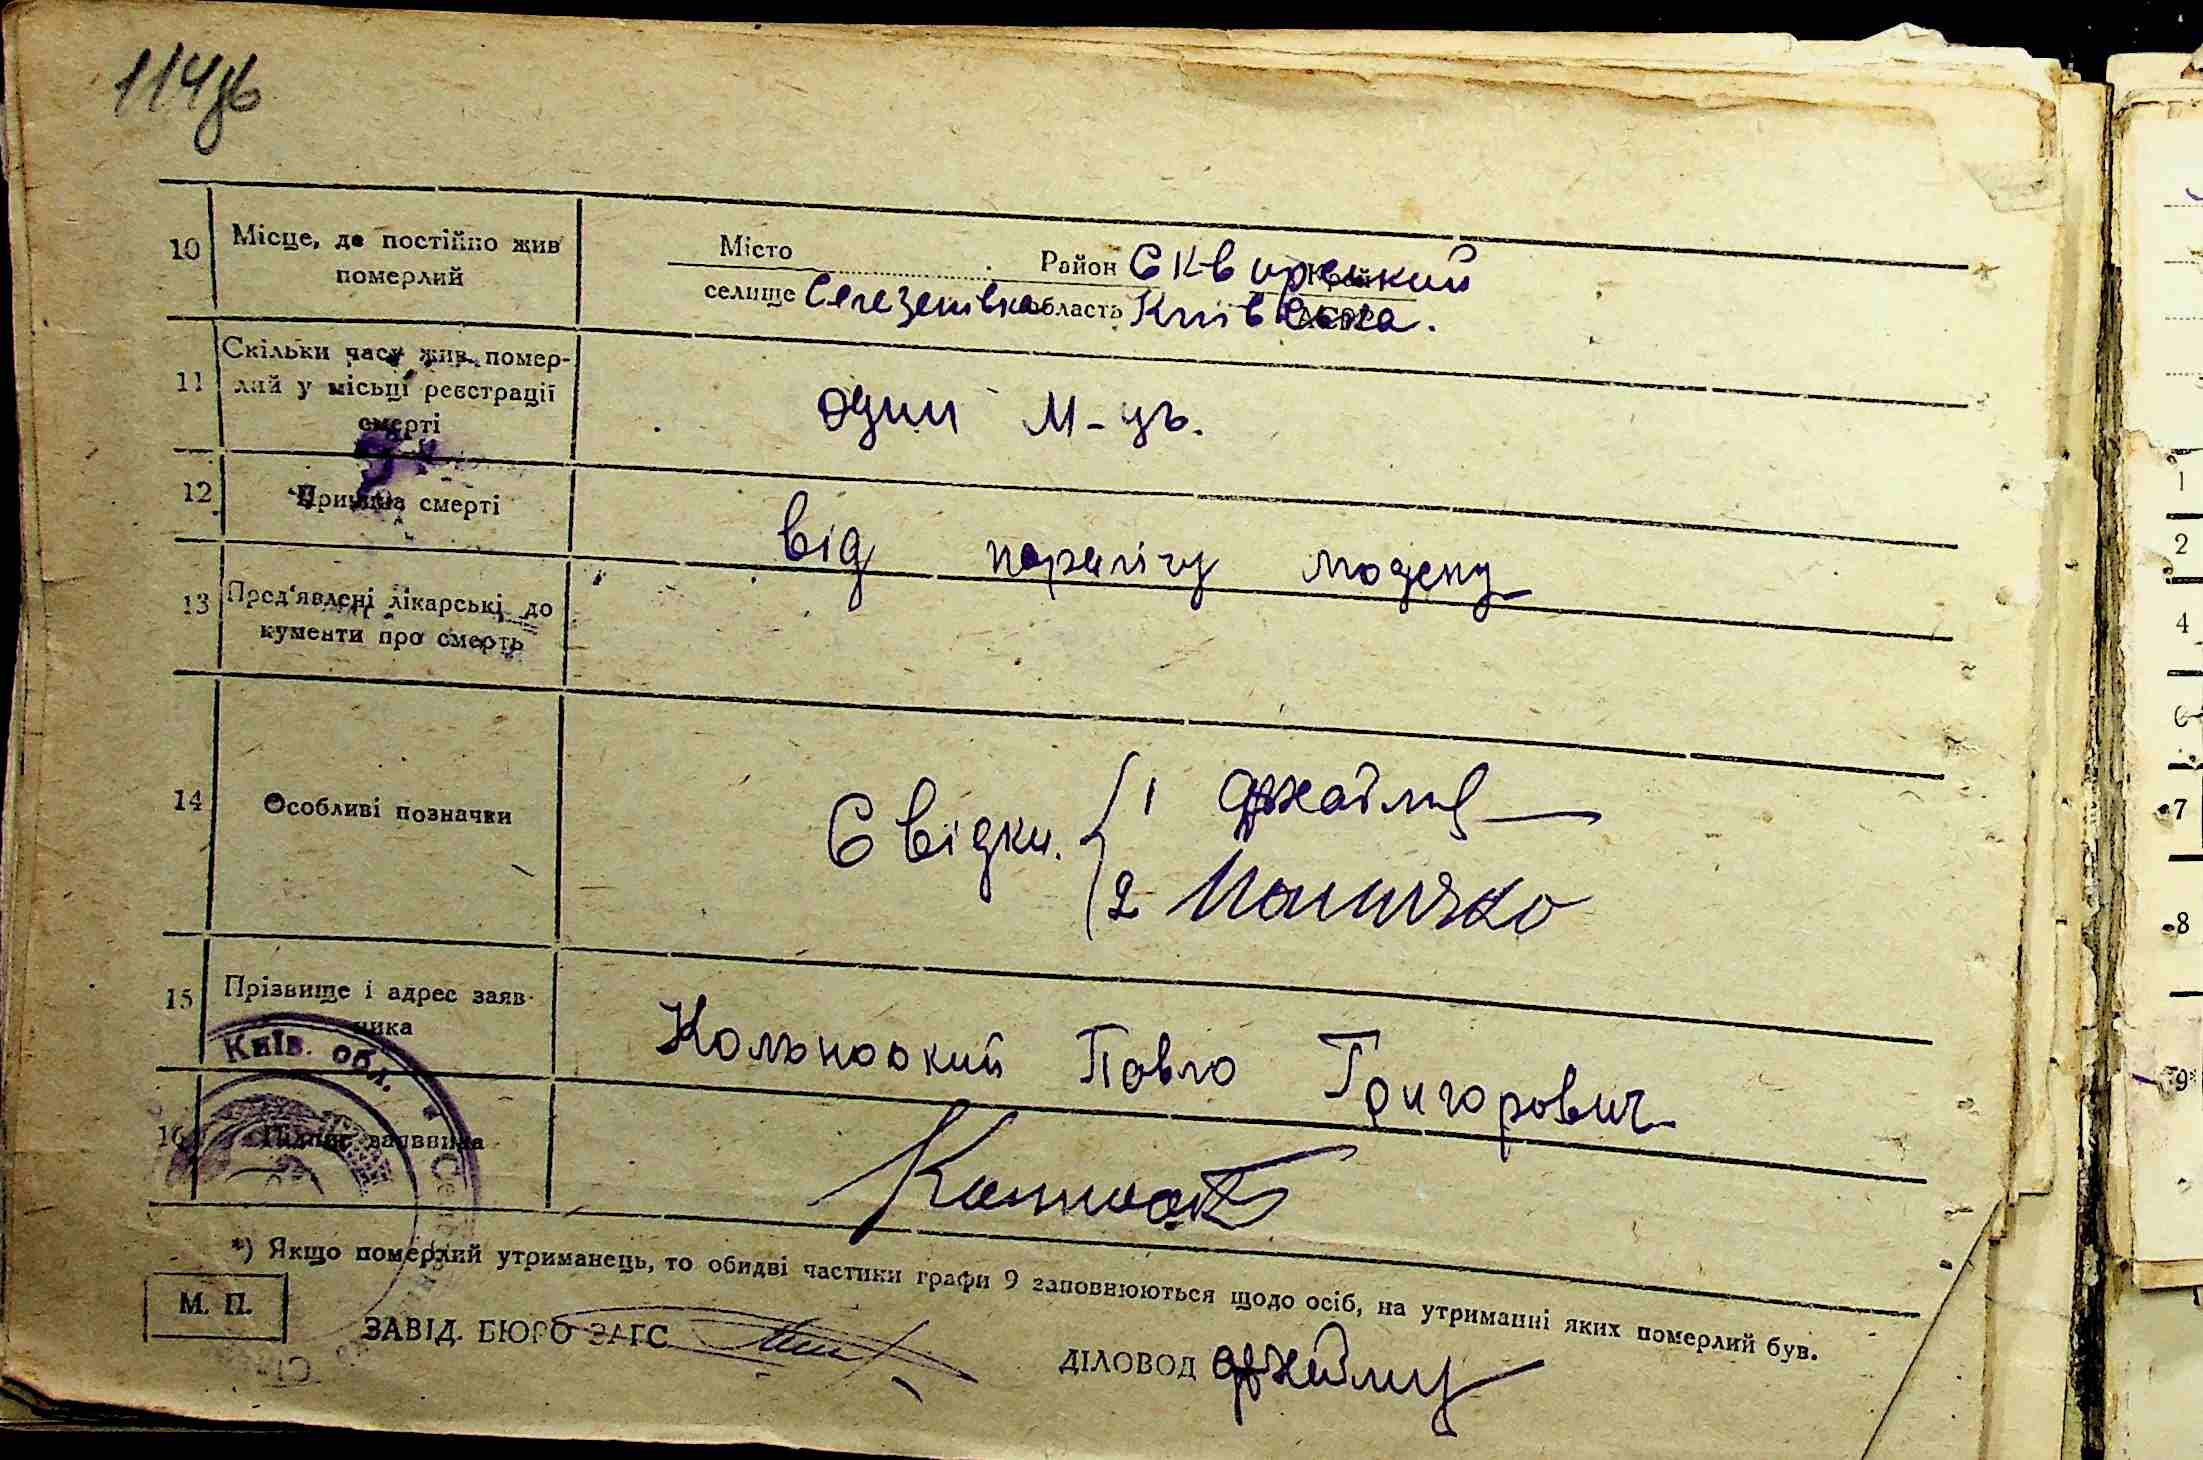 114зв
10 Місце, де постійно жив Місто Район Сквирський Край
померлий селище Селезенівка область Київська. АСРР
Скільки часу жив помер-
11 лий у місьці реєстрації один м-ць.
смерті
12 Причина смерті від паралічу
13 Пред'явлені лікарські до
кументи про смерть
14 Особливі позначки Свідки. 1
2
15 Прізвище і адрес заяв-
ника Павло Григорович
16 Підпис заявника
Київ. обл.
*) Якщо померлий утриманець, то обидві частини графи 9 заповнюються щодо осіб, на утриманні яких померлий був.
М. П.
ЗАВІД. БЮРО ЗАГС
ДІЛОВОД
1
2
4
6
7
8
9